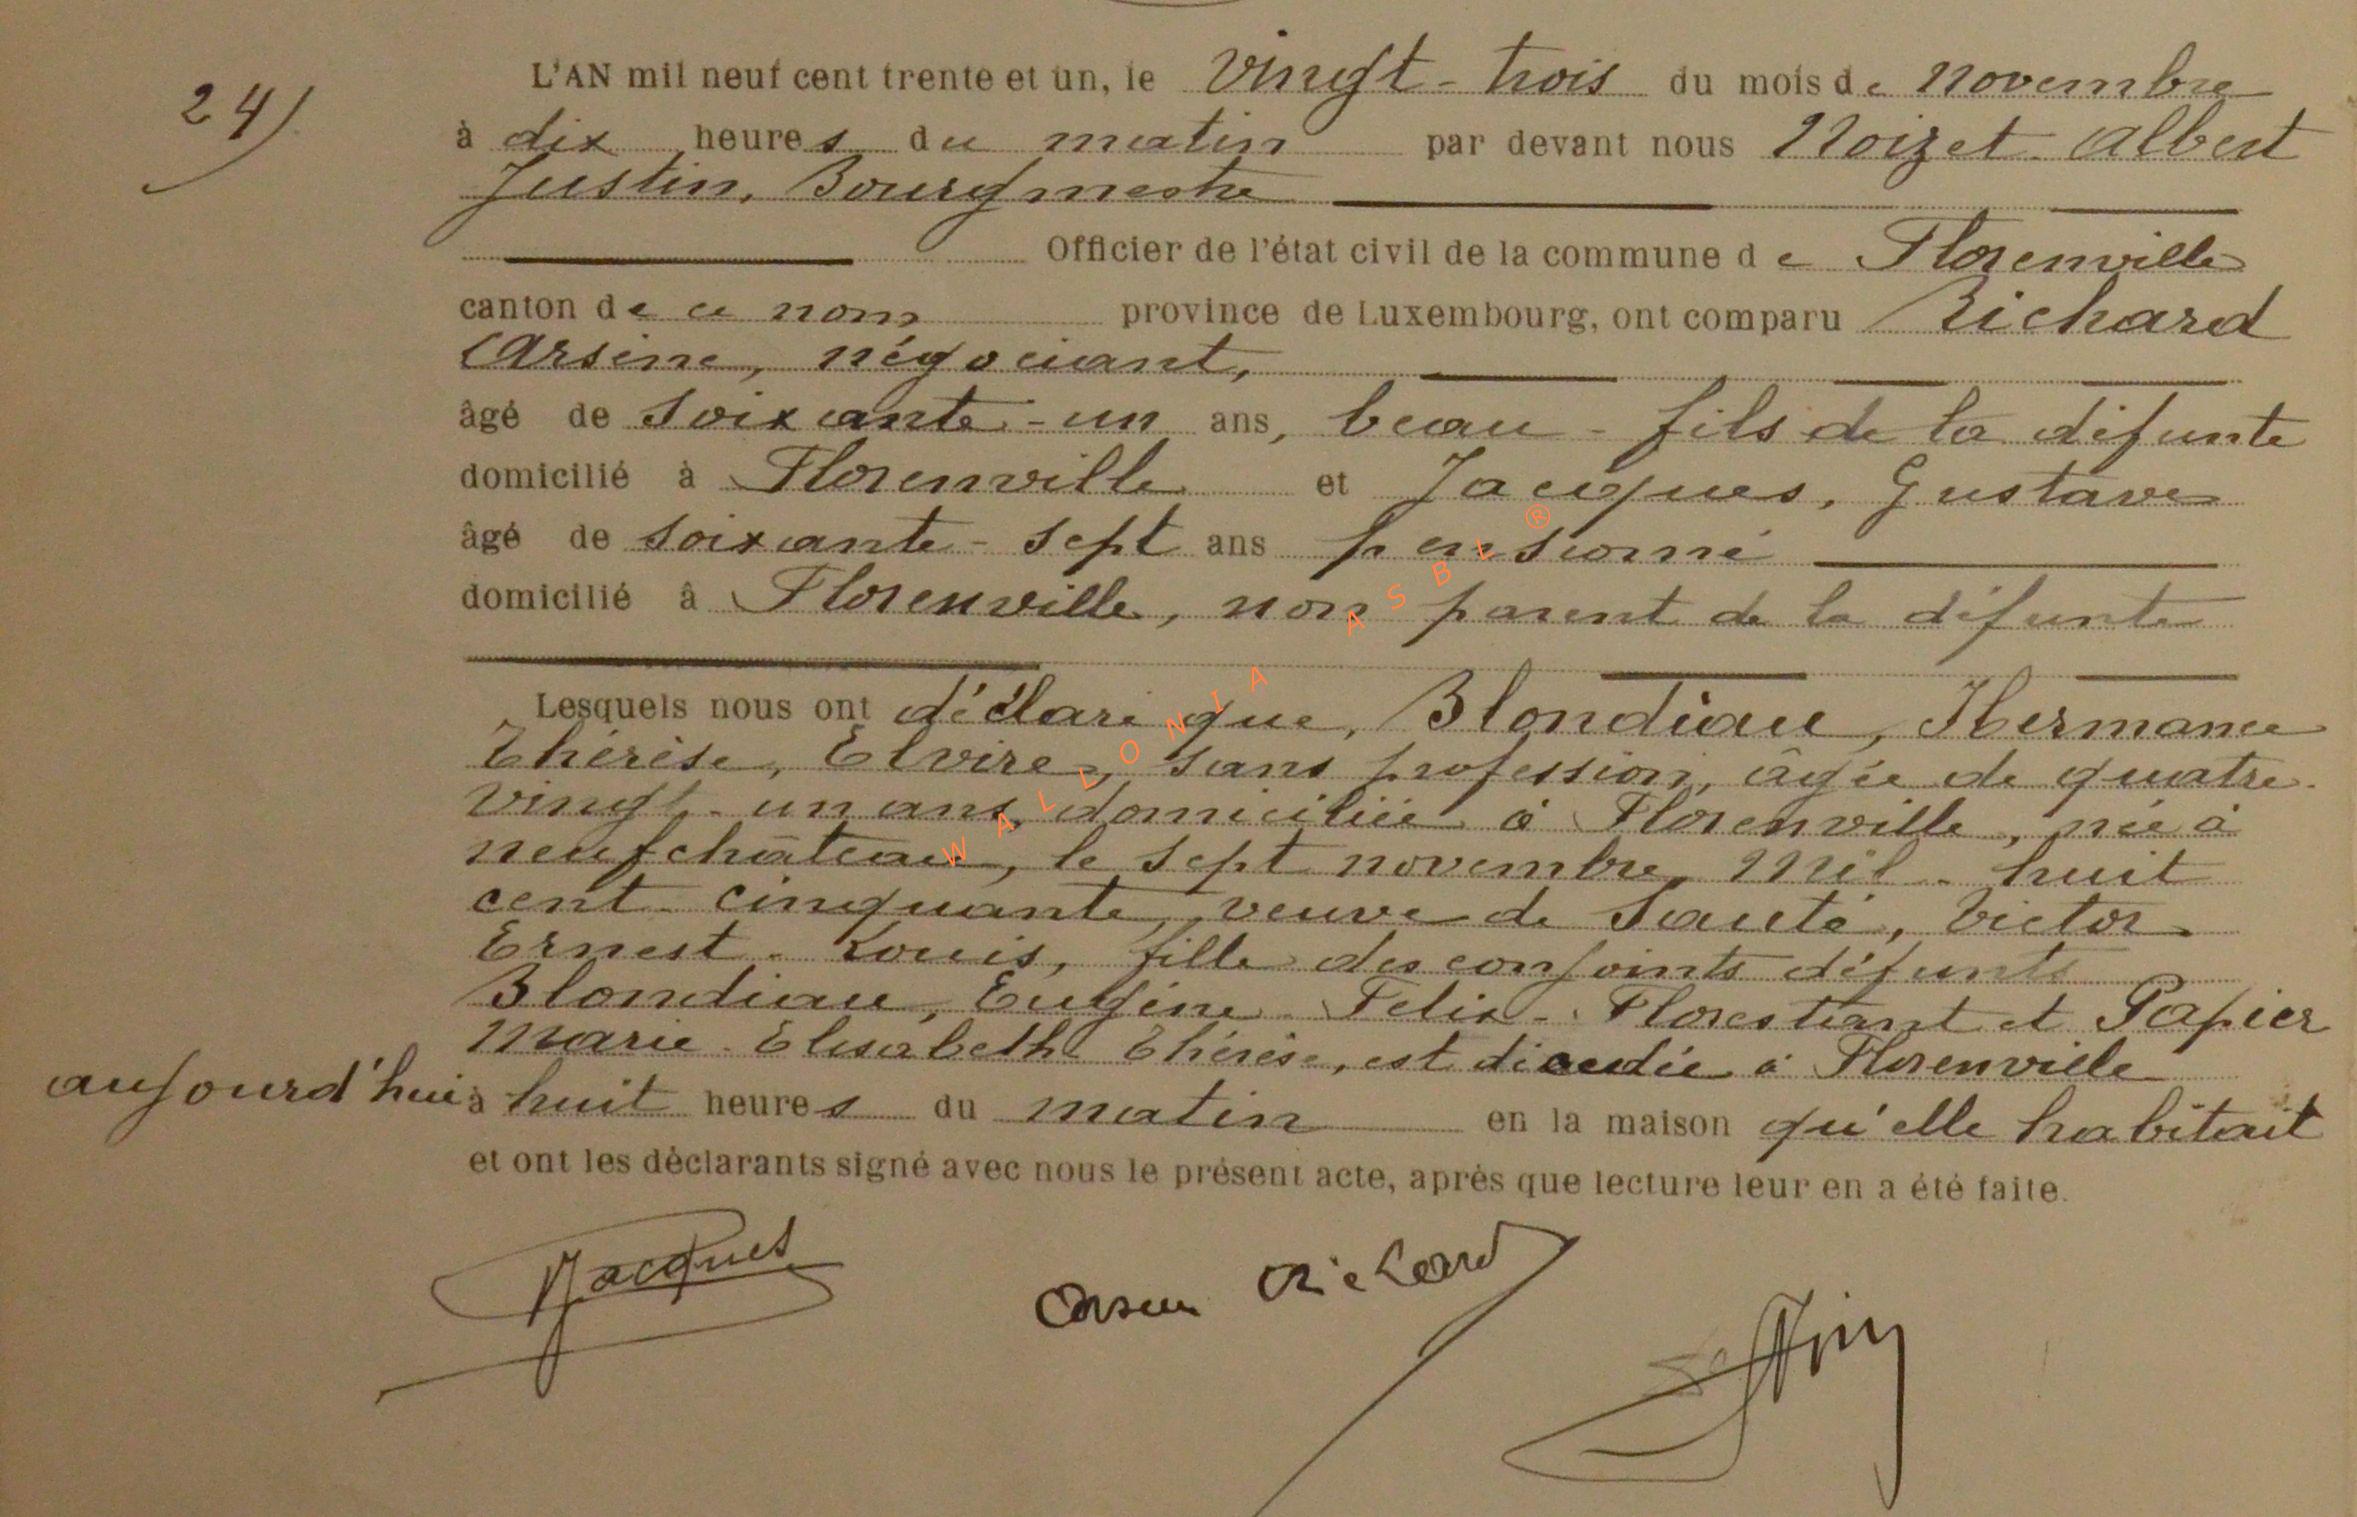 24)
L'AN mil neuf cent trente et un, le vingt-trois du mois de novembre
à dix heures du matin par devant nous Noizet Albert
Justin, Bourgmestre
Officier de l'état civil de la commune de Florenville
canton de ce nom province de Luxembourg, ont comparu Richard
Arsène, négociant,
âgé de soixante-un ans, beau-fils de la défunte
domicilié à Florenville et Jacques, Gustave
âgé de soixante-sept ans pensionné
domicilié à Florenville, non parent de la défunte
Lesquels nous ont déclaré que, Blondiau, Hermance
Thérèse, Elvire, sans profession, âgée de quatre-
vingt-un ans, domiciliée à Florenville, née à
neufchâteau, le sept novembre mil-huit
cent cinquante, veuve de Sauté, Victor
Ernest-Louis, fille des conjoints défunts
Blondiau, Eugène-Felix-Florestiant et Papier
Marie-Elisabeth Thérèse, est décédée à Florenville
aujourd'hui à huit heures du matin en la maison qu'elle habitait
et ont les déclarants signé avec nous le présent acte, après que lecture leur en a été faite.
Jacques
Arsene Richard
WALLONIA ASBL ®